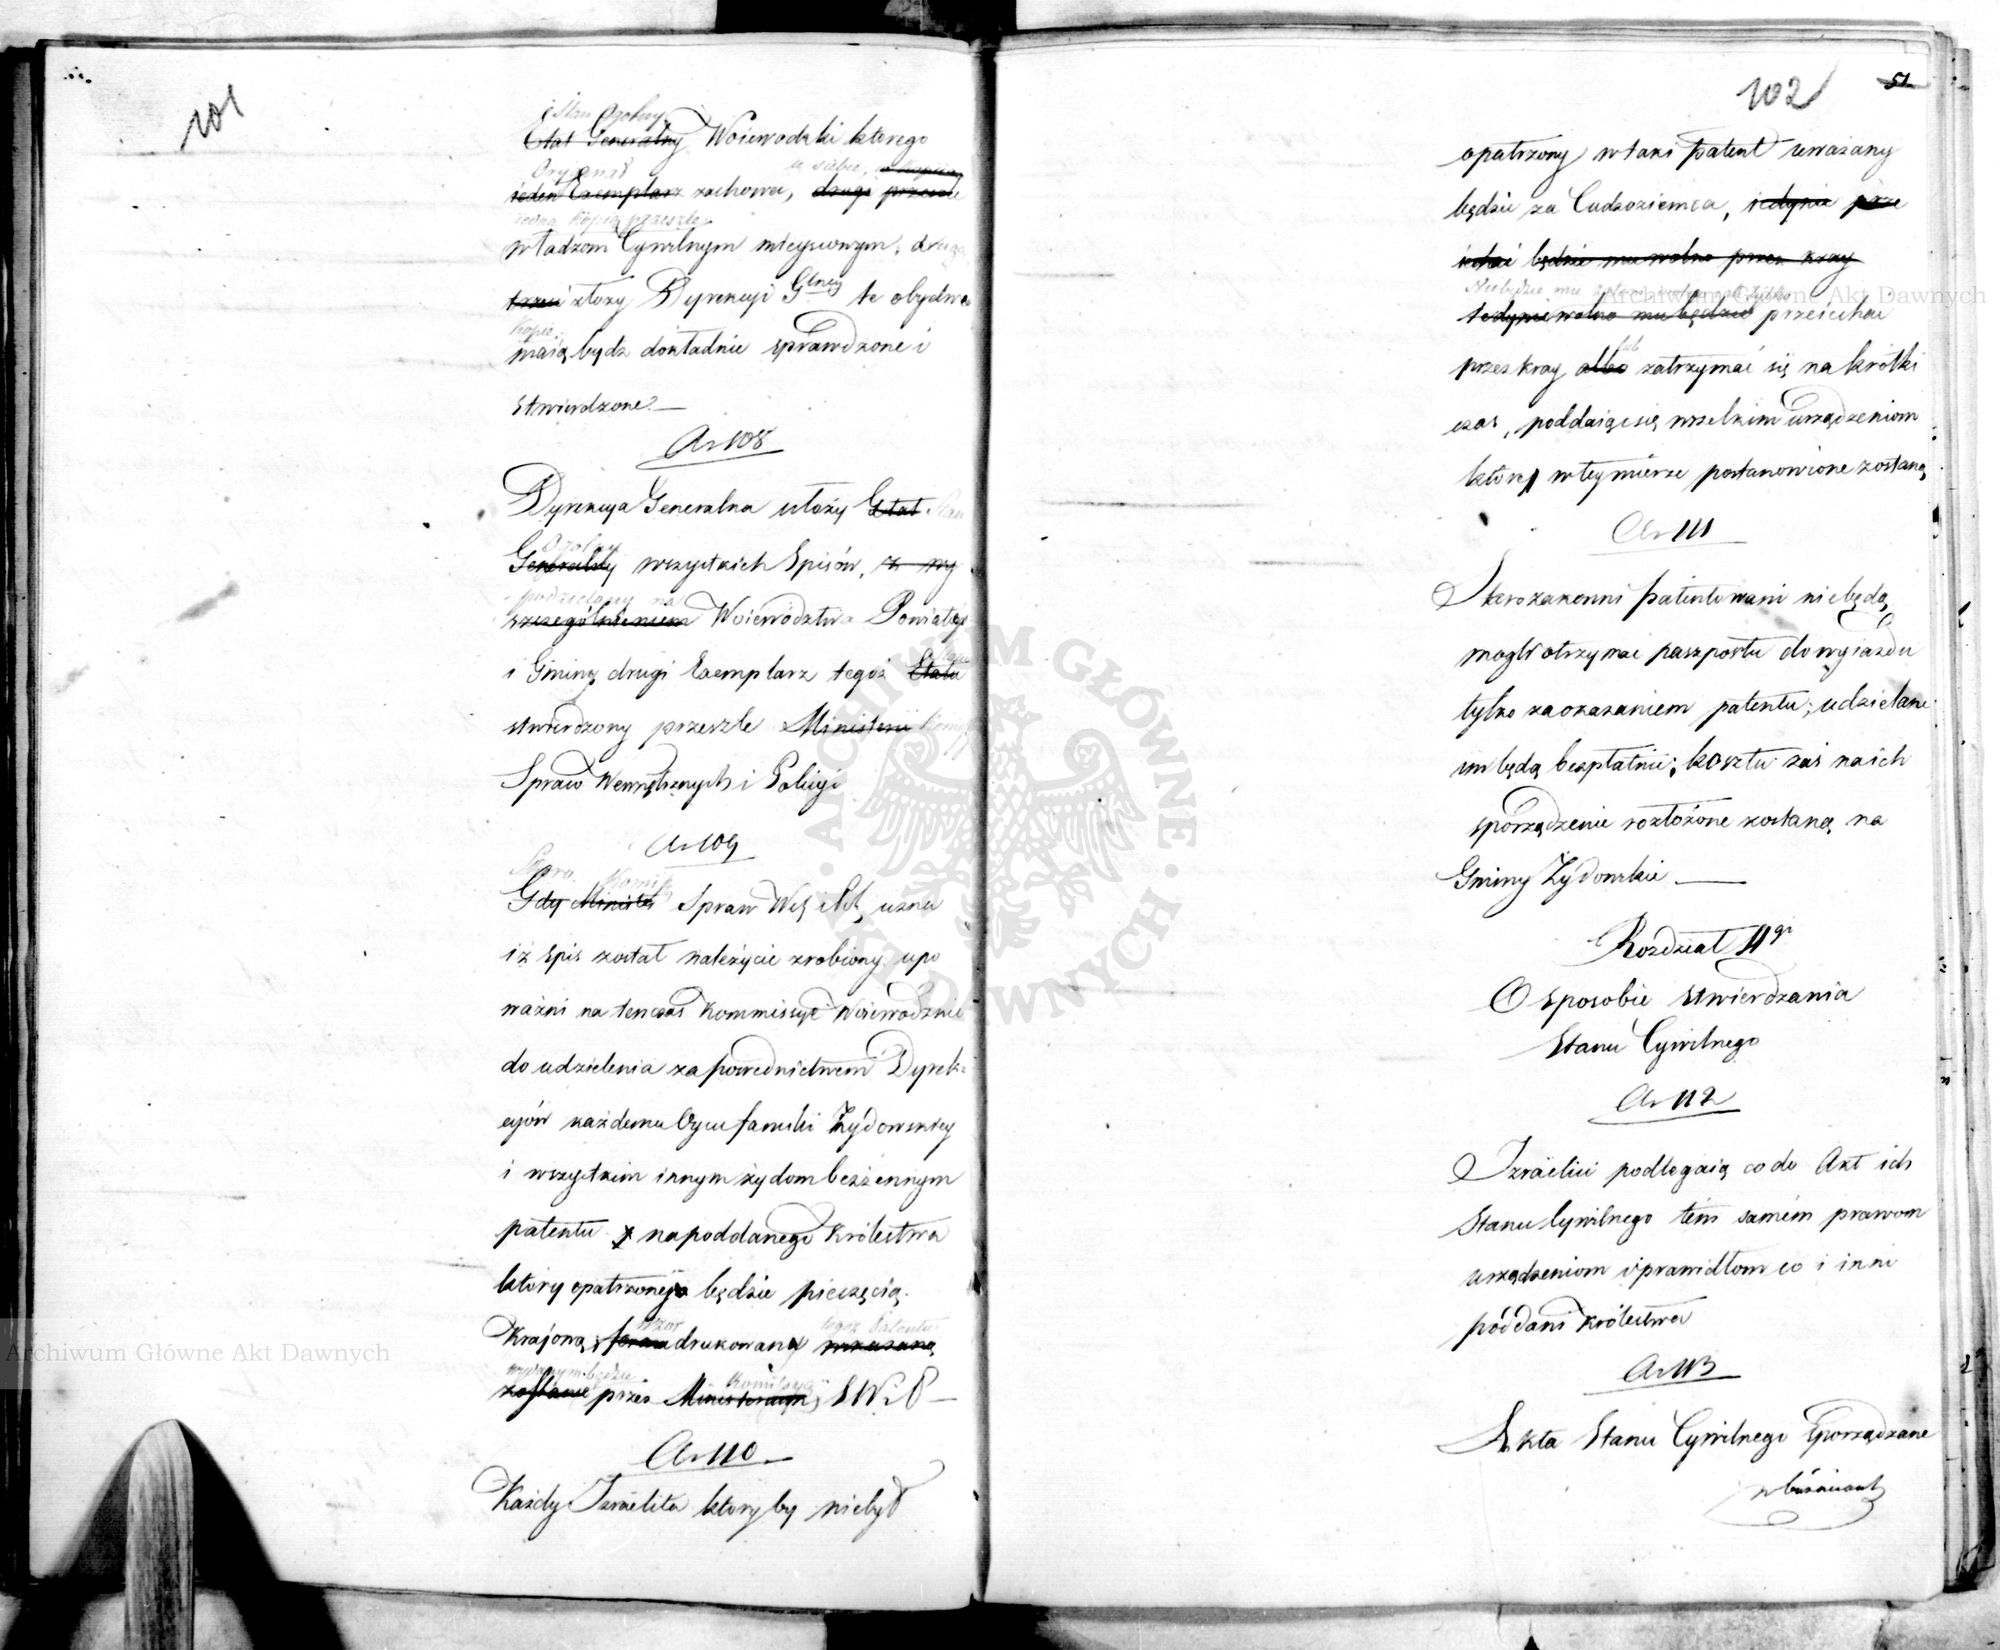 101
Stan Ogolny
Etat Generalny Woiewodzki ktorego
Oryginał u siebie, a kopią
ieden Exemplarz zachowa, drugi przeszle
iedną kopią przeszle
władzom Cywilnym mieyscowym, drugą
trzeci złoży Dyrekcyi Glney te obydwa
kopie
maią bydz dokładnie sprawdzone i
stwierdzone.—
Ar 108
Dyrekcya Generalna ułoży Etat Stan
Ogolny
Generalny wszystkich Spisów, z wy
podzielony na
szczególnieniem Woiewództwa Powiaty
i Gminy drugi Exemplarz tegoż Etatu
stwierdzony przeszle Ministerii
Spraw Wewnętrznych i Policyi
Ar 109
Skoro Komis
Gdy Minister Spraw We i Pol uzna
iż spis został należycie zrobiony upo
ważni na tenczas Kommissye Woiewodzkie
do udzielenia za posrednictwem Dyrek-
cyów każdemu Oycu familii Żydowskiey
i wszystkim innym żydom bezżennym
patentu na poddanego Królestwa
ktory opatrzony będzie pieczęcią
wzor tegoż Patentu
Krajową, forma drukowana wskazaną
wydanym będzie Komissyą
zostanie przez Ministeryum S W i P —
Ar 110
Każdy Izraelita ktoryby niebył
102
51
opatrzony w taki patent uważany
będzie za Cudzoziemca, iedynie prze
iechać będzie mu wolno przez kray
Niebędzie mu
iedynie wolno mu będzie przeiechać
lub
przez kray albo zatrzymać się na krótki
czas, poddaiąc się wszelkim urządzeniom
które w tey mierze postanowione zostaną
Ar 111
Starozakonni patentowani niebędą
mogli otrzymać paszportu do wyiazdu
tylko za okazaniem patentu; udzielane
im będą bezpłatnie; koszta zaś na ich
sporządzenie rozłożone zostaną na
Gminy Żydowskie —
Rozdział IIgi
O sposobie stwierdzania
Stanu Cywilnego
Ar 112
Izraelici podlegaią co do Akt ich
Stanu Cywilnego tém samém prawom
urządzeniom i prawidłom co i inni
póddani Królestwa
Ar 113
Akta Stanu Cywilnego Sporządzane
Archiwum Główne Akt Dawnych
Archiwum Główne Akt Dawnych
ARCHIWUM GŁÓWNE AKT DAWNYCH